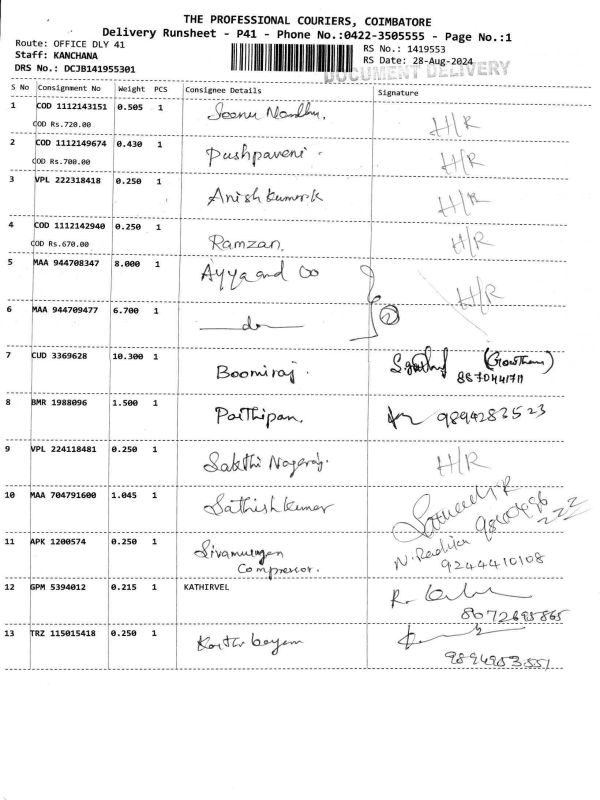 THE PROFESSIONAL COURIERS, COIMBATORE
Delivery Runsheet - P41 - Phone No.:0422-3505555 - Page No.:1
Route: OFFICE DLY 41
RS No.: 1419553
Staff: KANCHANA
RS Date: 28-Aug-2024
DRS No.: DCJB141955301
DOCUMENT DELIVERY
S No Consignment No Weight PCS Consignee Details Signature
1 COD 1112143151 0.505 1 Seenu Nandhu. H/R
COD Rs.720.00
2 COD 1112149674 0.430 1 Pushpaveni. H/R
COD Rs.700.00
3 VPL 222318418 0.250 1 Anish kumar.k H/R
4 COD 1112142940 0.250 1 Ramzan. H/R
COD Rs.670.00
5 MAA 944708347 8.000 1 Ayya and Co H/R
6 MAA 944709477 6.700 1 do 2
7 CUD 3369628 10.300 1 Boomiraj. (Gowtham)
8870441711
8 BMR 1988096 1.500 1 Parthipan. 9894283523
9 VPL 224118481 0.250 1 Sakthi Nagaraj. H/R
10 MAA 704791600 1.045 1 Sathishkumar
222
11 APK 1200574 0.250 1 Sivamurugan N. Radhika
Compressor. 9244410108
12 GPM 5394012 0.215 1 KATHIRVEL R.
8072695865
13 TRZ 115015418 0.250 1
9894953551